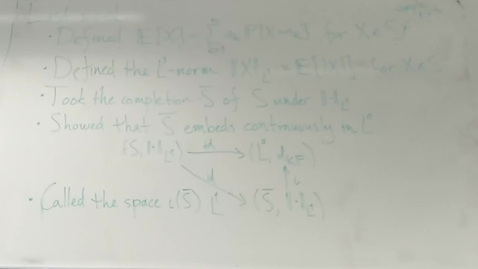 · Defined E[X] = Σ aₖ P[X=aₖ] for X ∈ S
· Defined the L¹-norm ‖X‖_L¹ = E[|X|] for X ∈ S
· Took the completion S̄ of S under ‖·‖_L¹
· Showed that S̄ embeds continuously in L⁰
(S, ‖·‖_L¹) →d (L⁰, d_KF)
d ↑ ι
· Called the space ι(S̄) L¹ (S̄, ‖·‖_L¹)